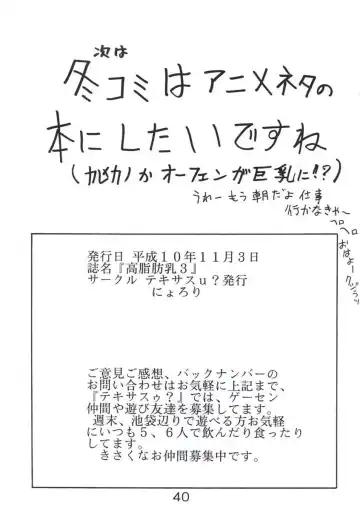 次は
冬コミはアニメネタの
本にしたいですね
(カレカノかオーフェンが巨乳に!?)
うわーもう朝だよ仕事
行かなきゃ〜
ヘロヘロ
おはよーグ
発行日 平成10年11月3日
誌名『高脂肪乳3』
サークル テキサスu?発行
にょろり
ご意見ご感想、バックナンバーの
お問い合わせはお気軽に上記まで、
『テキサスゥ?』では、ゲーセン
仲間や遊び友達を募集してます。
週末、池袋辺りで遊べる方お気軽
にいつも5、6人で飲んだり食ったり
してます。
きさくなお仲間募集中です。
40